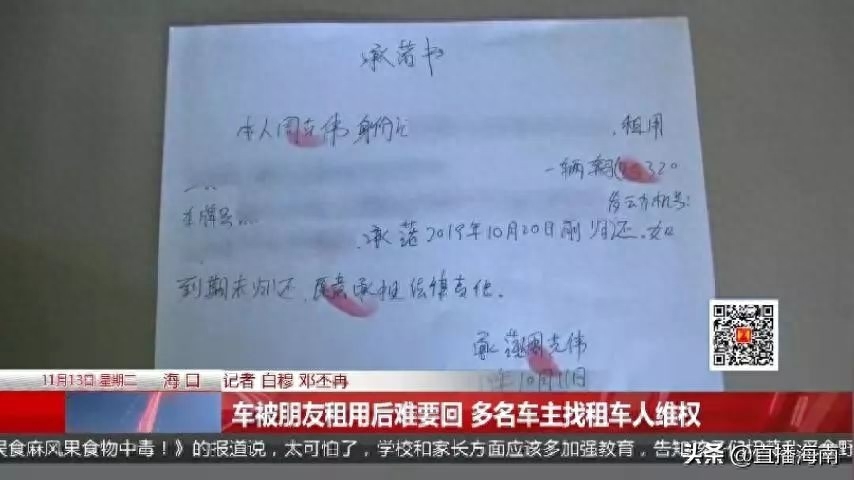 承诺书
本人周克伟身份证
,租用
一辆
320
车牌号
发动机号:
承诺2019年10月20日前归还.如
到期未归还,愿意承担法律责任。
周克伟
年10月11日
11月13日 星期二 海口 记者 白穆 邓丕冉
车被朋友租用后难要回 多名车主找租车人维权
食麻风果食物中毒!》的报道说,太可怕了,学校和家长方面应该多加强教育,告知孩子们
头条 @直播海南